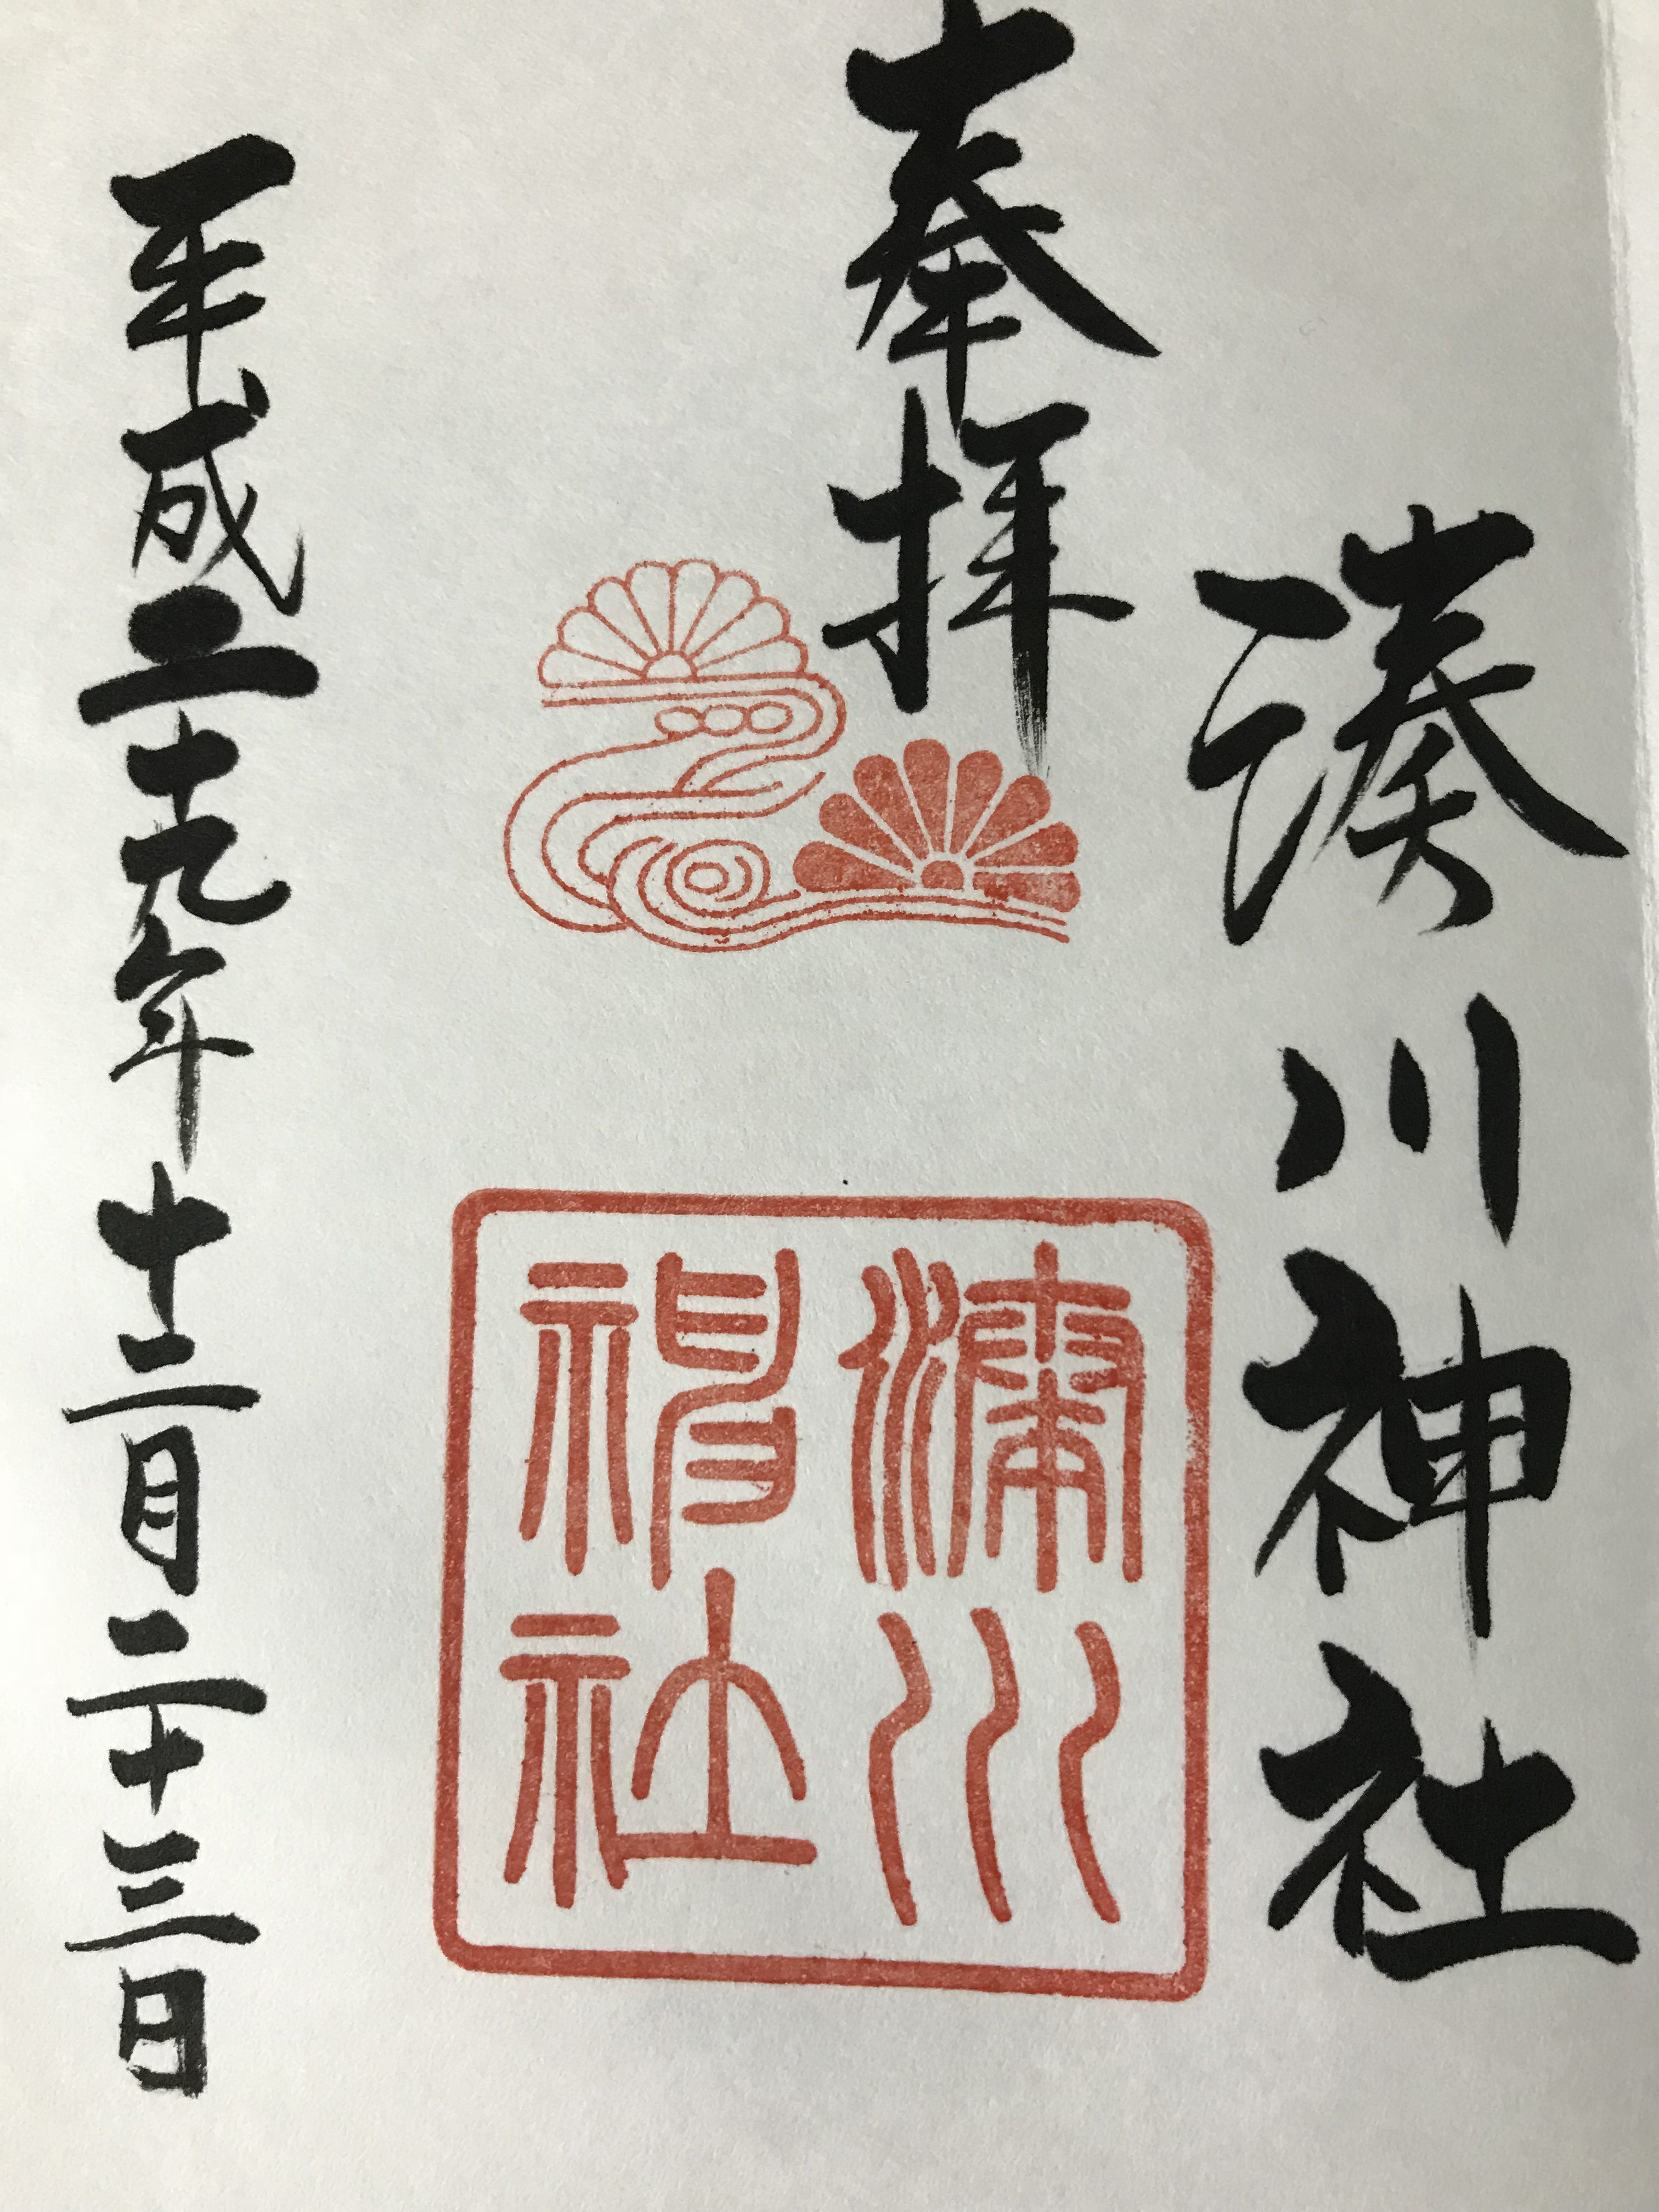 湊川神社
奉拝
湊川
神社
平成二十九年十二月二十三日